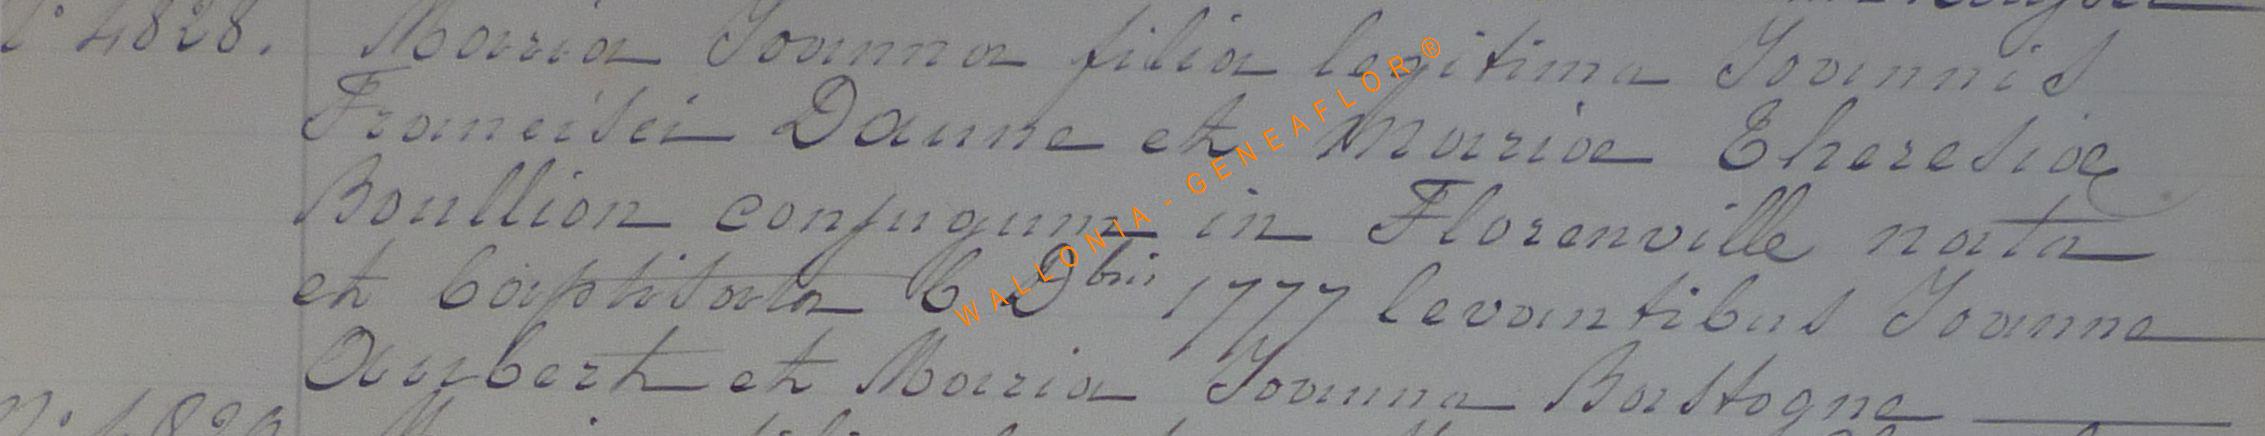 N° 4828. Maria Joanna filia legitima Joannis
Francisci Daune et Mariæ Theresiæ
Boullion conjugum in Florenville nata
et baptisata 6 Dbris 1777 levantibus Joanne
Aubert et Maria Joanna Bastogne
N° 4829
WALLONIA - GENEAFLOR®